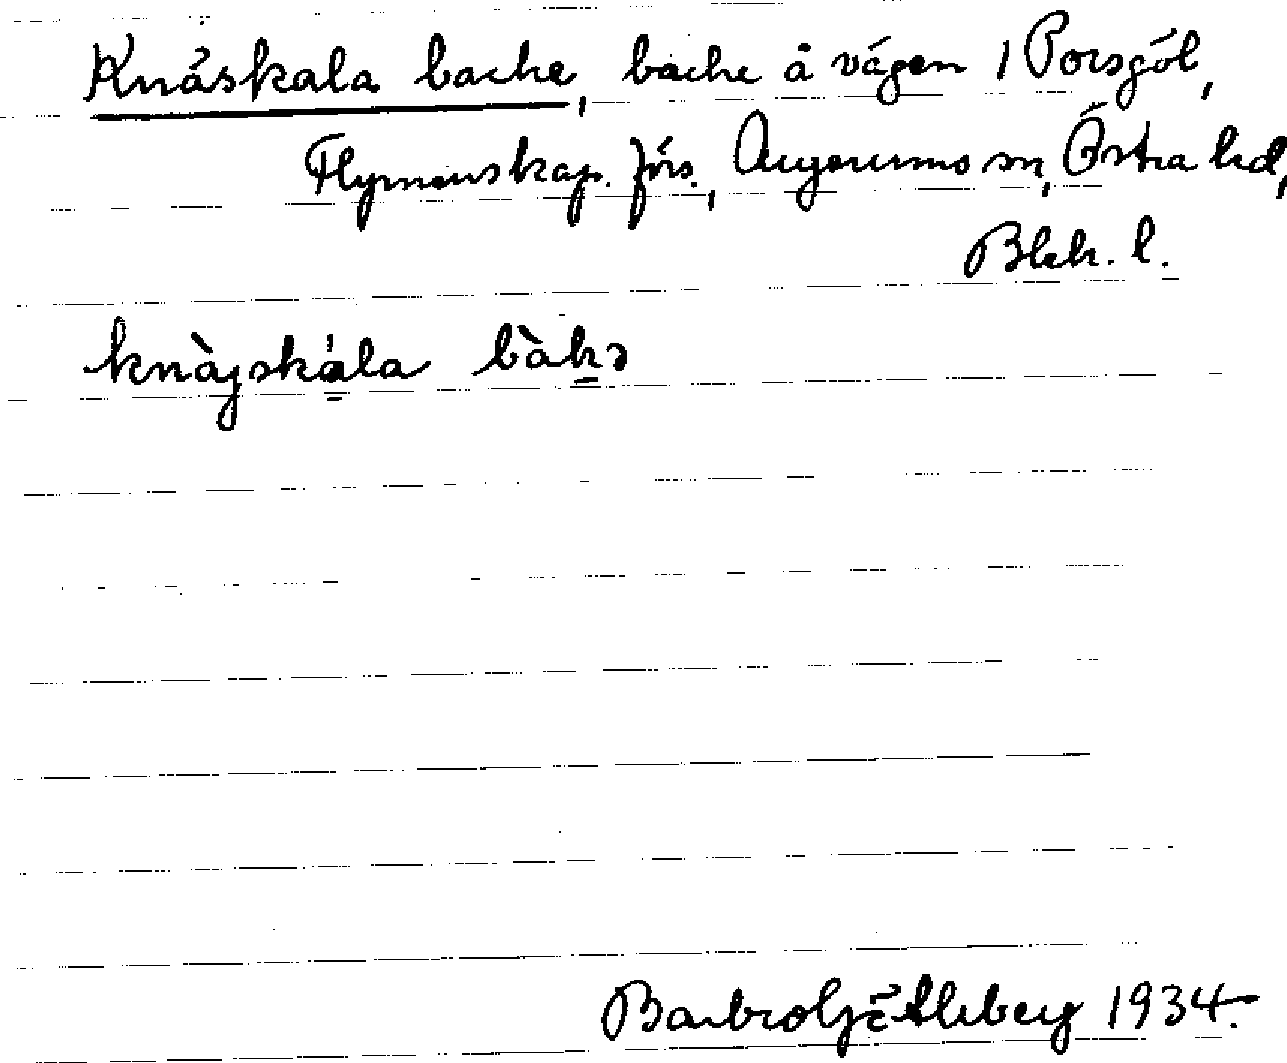 Knäskala backe, backe å vägen i Porsgöl,
Flymenskap. förs., Augerums sn, Östra hd,
Blek. l.
knàjskála bàkə
1934.